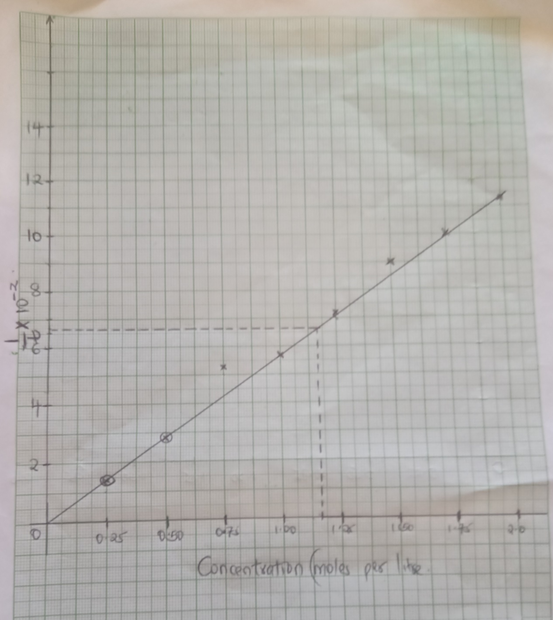 14
12
10
8
6
4
2
1/t × 10⁻²
0
0.25 0.50 0.75 1.00 1.25 1.50 1.75 2.0
Concentration (moles per litre